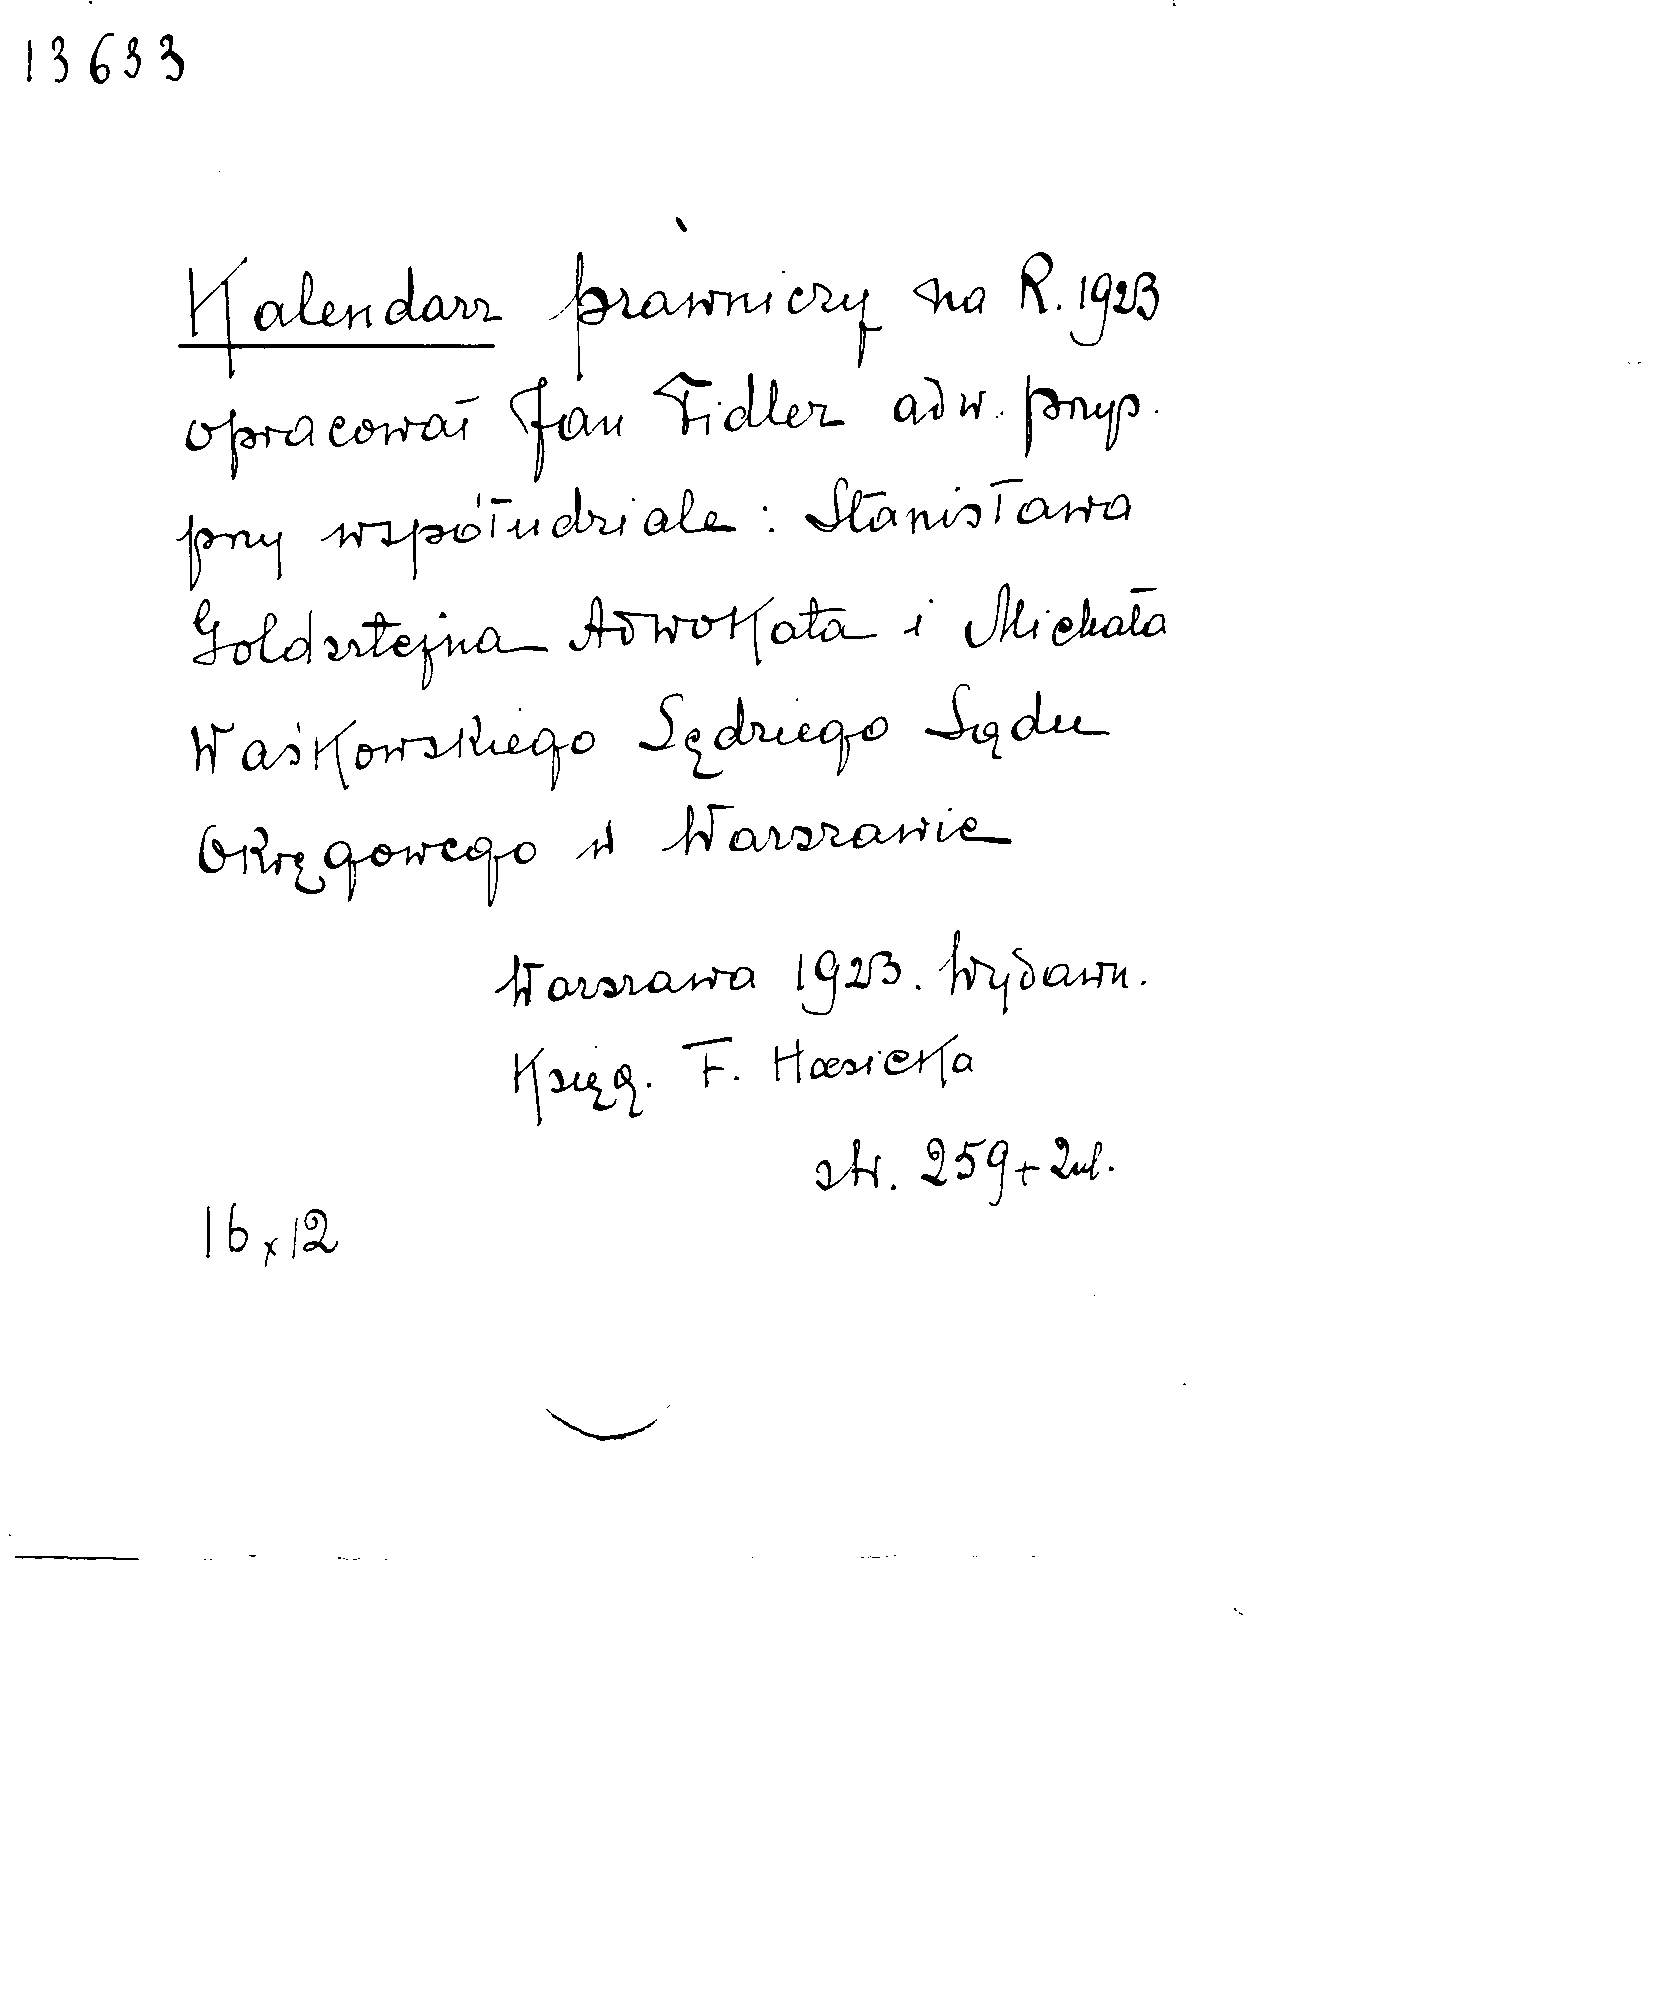 13633
Kalendarz prawniczy na R. 1923
opracował Jan Fidler adw. przys.
przy współudziale: Stanisława
Goldsztejna Adwokata i Michała
Waśkowskiego Sędziego Sądu
Okręgowego w Warszawie
Warszawa 1923. Wydawn.
Księg. F. Hoesicka
str. 259 + 2 nl.
16 x 12